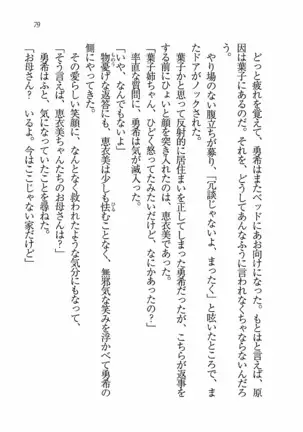 79
どっと疲れを覚えて、勇希はまたベッドにあお向けになった。もとはと言えば、原
因は葉子にあるのだ。それを、どうしてあんなふうに言われなくちゃならないんだろ
う。
やり場のない腹立ちが募り、「冗談じゃないよ、まったく」と呟いたところで、ま
たドアがノックされた。
葉子かと思って反射的に居住まいを正してしまった勇希だったが、こちらが返事を
する前にひょいと顔を突き入れたのは、恵衣美であった。
「葉子姉ちゃん、ひどく怒ってたみたいだけど、なにかあったの？」
率直な質問に、勇希は気が滅入った。
「いや、なんでもないよ」
物憂げな返答にも、恵衣美は少しも怯むことなく、無邪気な笑みを浮かべて勇希の
側にやってきた。
その愛らしい笑顔に、なんとなく救われたような気分にもなって、
「そう言えば、恵衣美ちゃんたちのお母さんは？」
勇希はふと、気になっていたことをたずねてみた。
「お母さん？　いるよ。今はここじゃない家だけど」